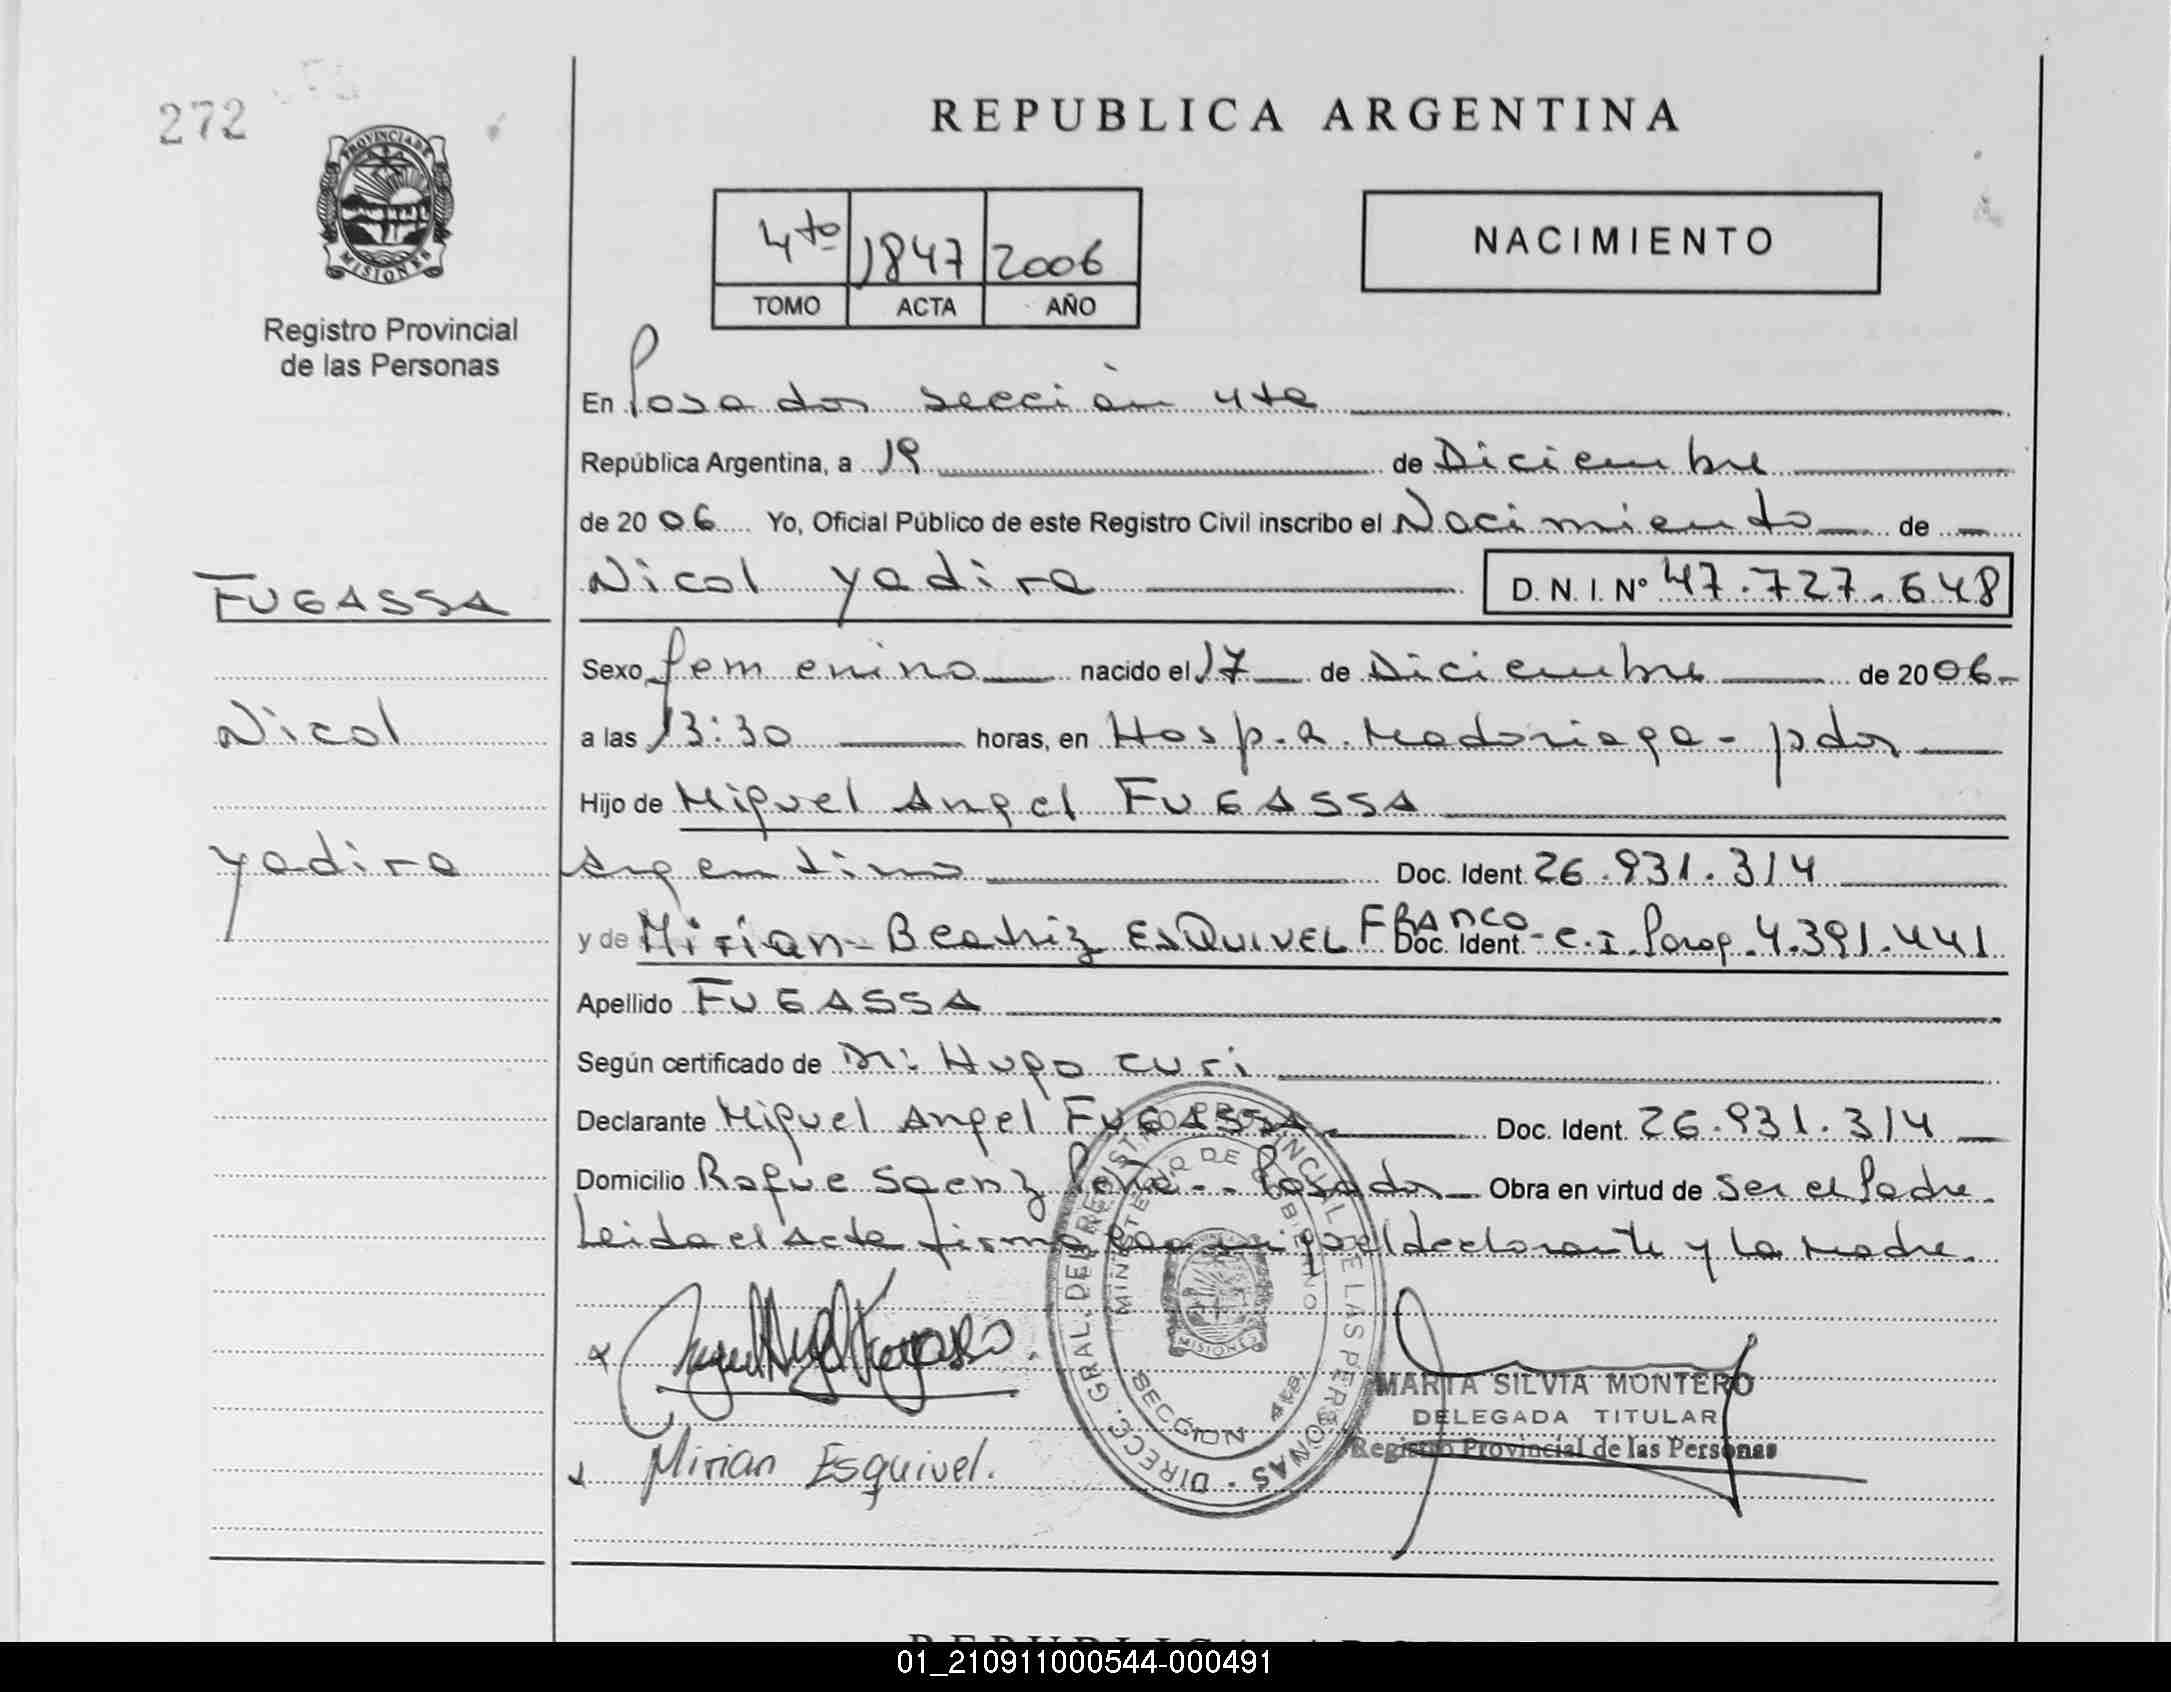 272
PROVINCIA DE
MISIONES
Registro Provincial
de las Personas
REPUBLICA ARGENTINA
4to 1847 2006
TOMO ACTA AÑO
NACIMIENTO
En Posadas sección 4ta
República Argentina, a 19 de Diciembre
de 2006 Yo, Oficial Público de este Registro Civil inscribo el Nacimiento de
FUGASSA
Nicol yadira
Nicol yadira D.N.I. Nº 47.727.648
Sexo femenino nacido el 17 de Diciembre de 2006
a las 13:30 horas, en Hosp. R. Madariaga - pdas
Hijo de Miguel Angel FUGASSA
Argentino Doc. Ident. 26.931.314
y de Mirian Beatriz ESQUIVEL FRANCO Doc. Ident. C.I. Parag. 4.391.441
Apellido FUGASSA
Según certificado de Dr: Hugo Curi
Declarante Miguel Angel FUGASSA Doc. Ident. 26.931.314
Domicilio Roque Saenz Peña - Posadas Obra en virtud de ser el Padre
Leida el Acta firma conmigo el declarante y la Madre.
DIRECC. GRAL. DEL REGISTRO PROVINCIAL DE LAS PERSONAS
MINISTERIO DE GOBIERNO
MISIONES
SECCION 4ta
Mirian Esquivel.
MARTA SILVIA MONTERO
DELEGADA TITULAR
Registro Provincial de las Personas
01_210911000544-000491